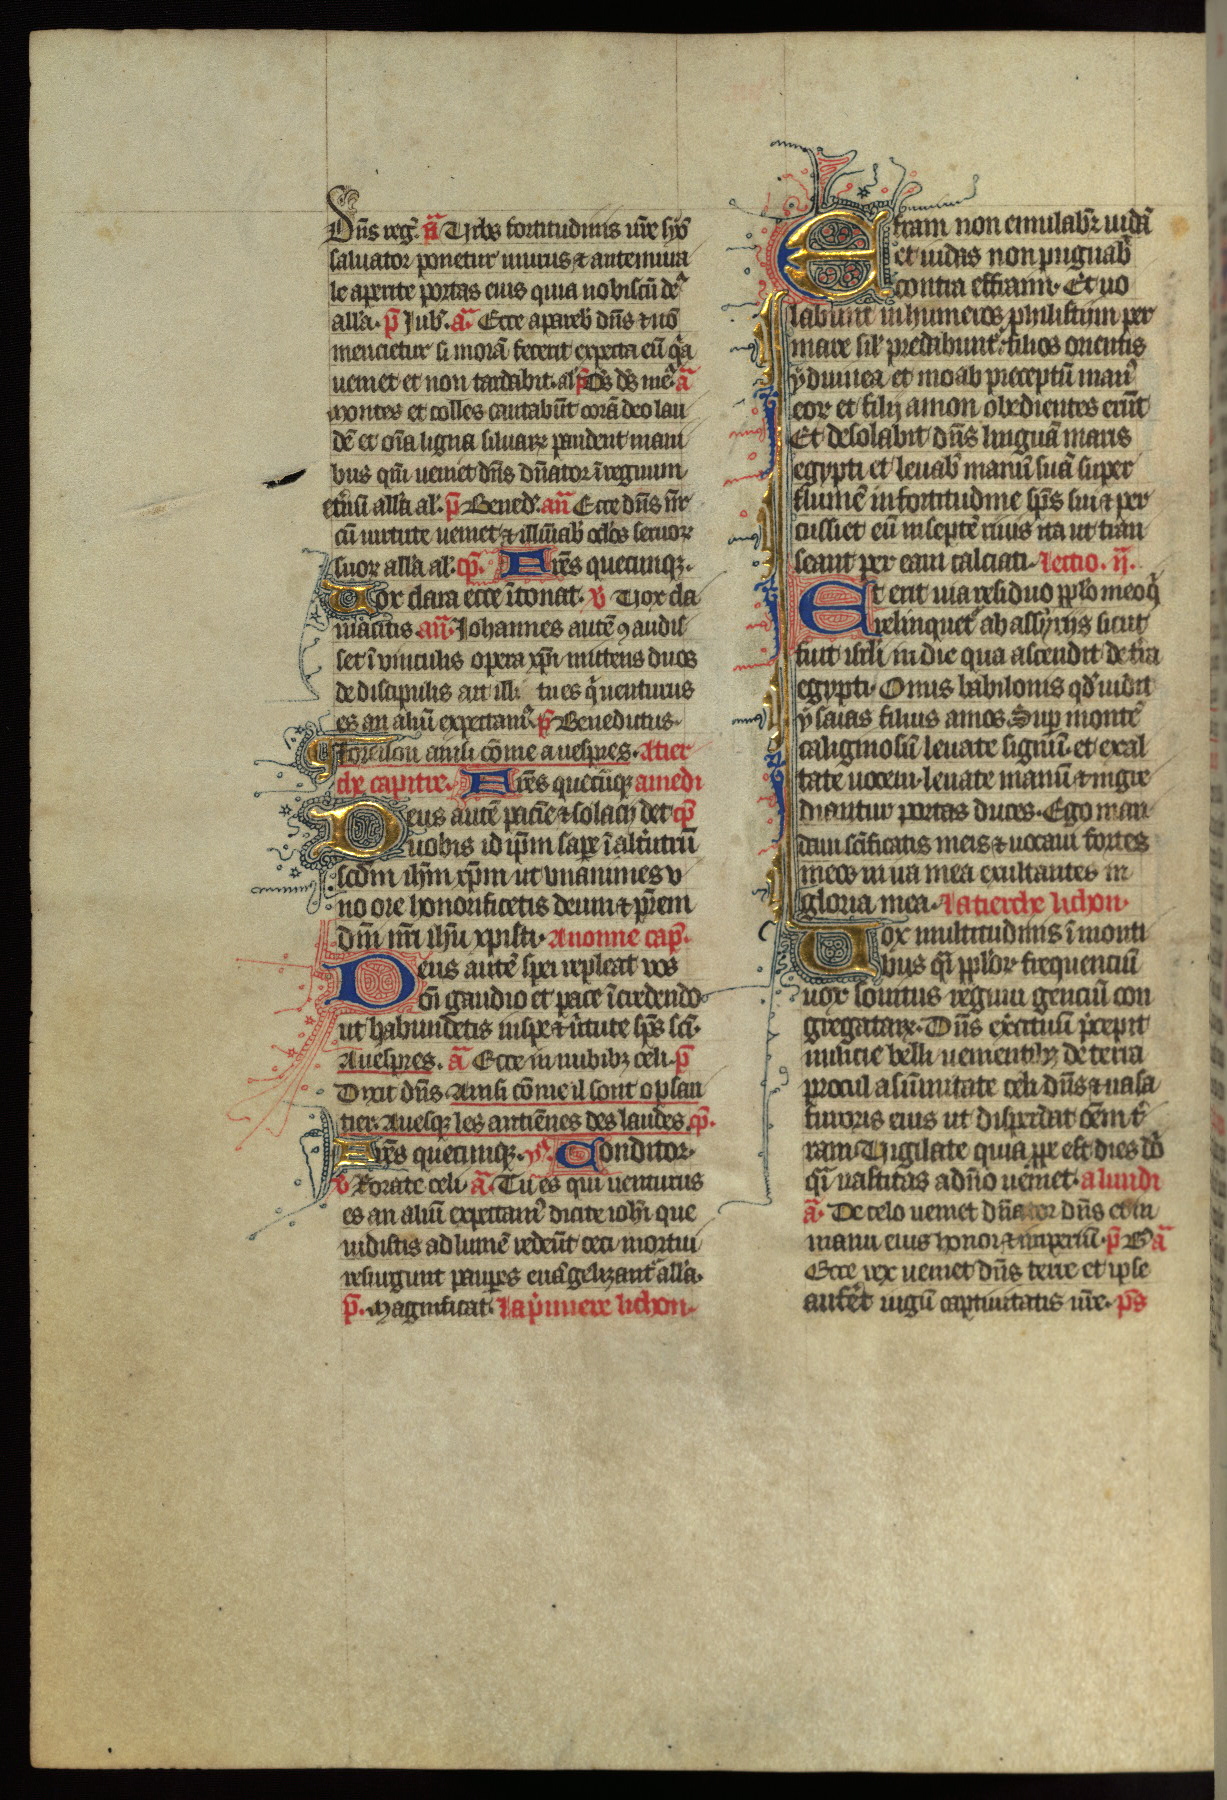 Dñs reg̃. ã Vrbs fortitudinis nr̃e syõ
saluator ponetur in murus ⁊ antemura
le aperite portas eius quia nobiscũ de᷒
all'a. p̃ Jub'. ã. Ecce apareb' dñs ⁊ nõ
mencietur si morã fecerit expecta eũ q̃a
ueniet et non tardabit. al' p̃ Ds ds me᷒ ã
montes et colles cantabũt corã deo lau
dẽ et oĩa ligna siluarꝝ paudent mani
bus qm̃ ueniet dñs dñator ĩ regnum
et̃nũ all'a al'. p̃ Bened'. añ Ecce dñs nr̃
cũ uirtute ueniet ⁊ illũiab' oclos seruoꝝ
suoꝝ all'a al'. cp̃. Frẽs quecunqꝫ.
Vox clara ecce ĩtonat. v Vox cla
mãtis añ. Johannes autẽ ꝯ audis
set ĩ vinculis opera xp̃i mittens duos
de discipulis ait illi tu es q̃ uenturus
es an aliũ expectam᷒. p̃ Benedictus.
loreison ainsi cõme a uespres. A tier
che capitre. Frẽs quecũqꝫ a miedi
Deus autẽ pacie᷒ ⁊ solacij det cp̃
uobis id ip̃m sape ĩ alt'utrũ
scdm ih̃m xp̃m ut vnanimes v
no ore honorificetis deum ⁊ pr̃em
dñi nr̃i ih̃u xpisti. A nonne cap̃.
Deus autẽ spei repleat vos
oñi gaudio et pace ĩ credendo
ut habundetis in spe ⁊ ũtute sp̃s sc̃i.
A uespres. ã Ecce in nubibꝫ celi. p̃
Dixit dñs. Ainsi cõme il sont o psau
tier. Auesqꝫ les antiẽnes des laudes. cp̃.
Frẽs quecunqꝫ. ỹ. Conditor.
v Rorate celi. ã. Tu es qui uenturus
es an aliũ expectam᷒ dicite ioh̃i que
uidistis ad lumẽ redeũt ceci mortui
resurgunt paup̃es euãgelizant᷒ all'a.
p̃. Magnificat. La p'miere lichon.
Effraim non emulab'r iudã
et iudas non pugnab'
contra effraim. Et uo
labunt in humeros philistijm per
mare sil' predabunt᷒ filios orientis
ydumea et moab preceptũ man᷒
eoꝝ et filij amon obedientes erũt
Et desolabit dñs linguã maris
egypti et leuab' manũ suã super
flumẽ in fortitudine sp̃s sui ⁊ per
cussiet eũ in septẽ riuis ita ut tran
seant per eam calciati. Lectio. ij.
Et erit uia residuo pp̃lo meo q̃
relinquet᷒ ab assyrijs sicut
fuit isr̃li in die qua ascendit de t'ra
egypti. Onus babilonis qd' uidit
ysaias filius amos. Sup montẽ
caliginosũ leuate signũ. et exal
tate uocem. leuate manũ ⁊ ingre
diantur portas duces. Ego man
daui sc̃ificatis meis ⁊ uocaui fortes
meos in ira mea exultantes in
gloria mea. La tierche lichon.
Vox multitudinis ĩ monti
bus q̃i pp̃loꝝ frequenciũ
uox sonitus regum genciũ con
gregataꝝ. Dñs exc̃ituũ p̃cepit
milicie belli uenientibꝫ de terra
procul a sũmitate celi dñs ⁊ uasa
furoris eius ut disperdat oẽm t'
ram. Vigilate quia ꝓpe est dies dñi
q̃i uastitas a dño ueniet. a lundi
ã. De celo ueniet dñator dñs et in
manu eius honor ⁊ imperiũ. p̃ B' ã
Ecce rex ueniet dñs terre et ipse
auferet iugũ captiuitatis nr̃e. p̃s